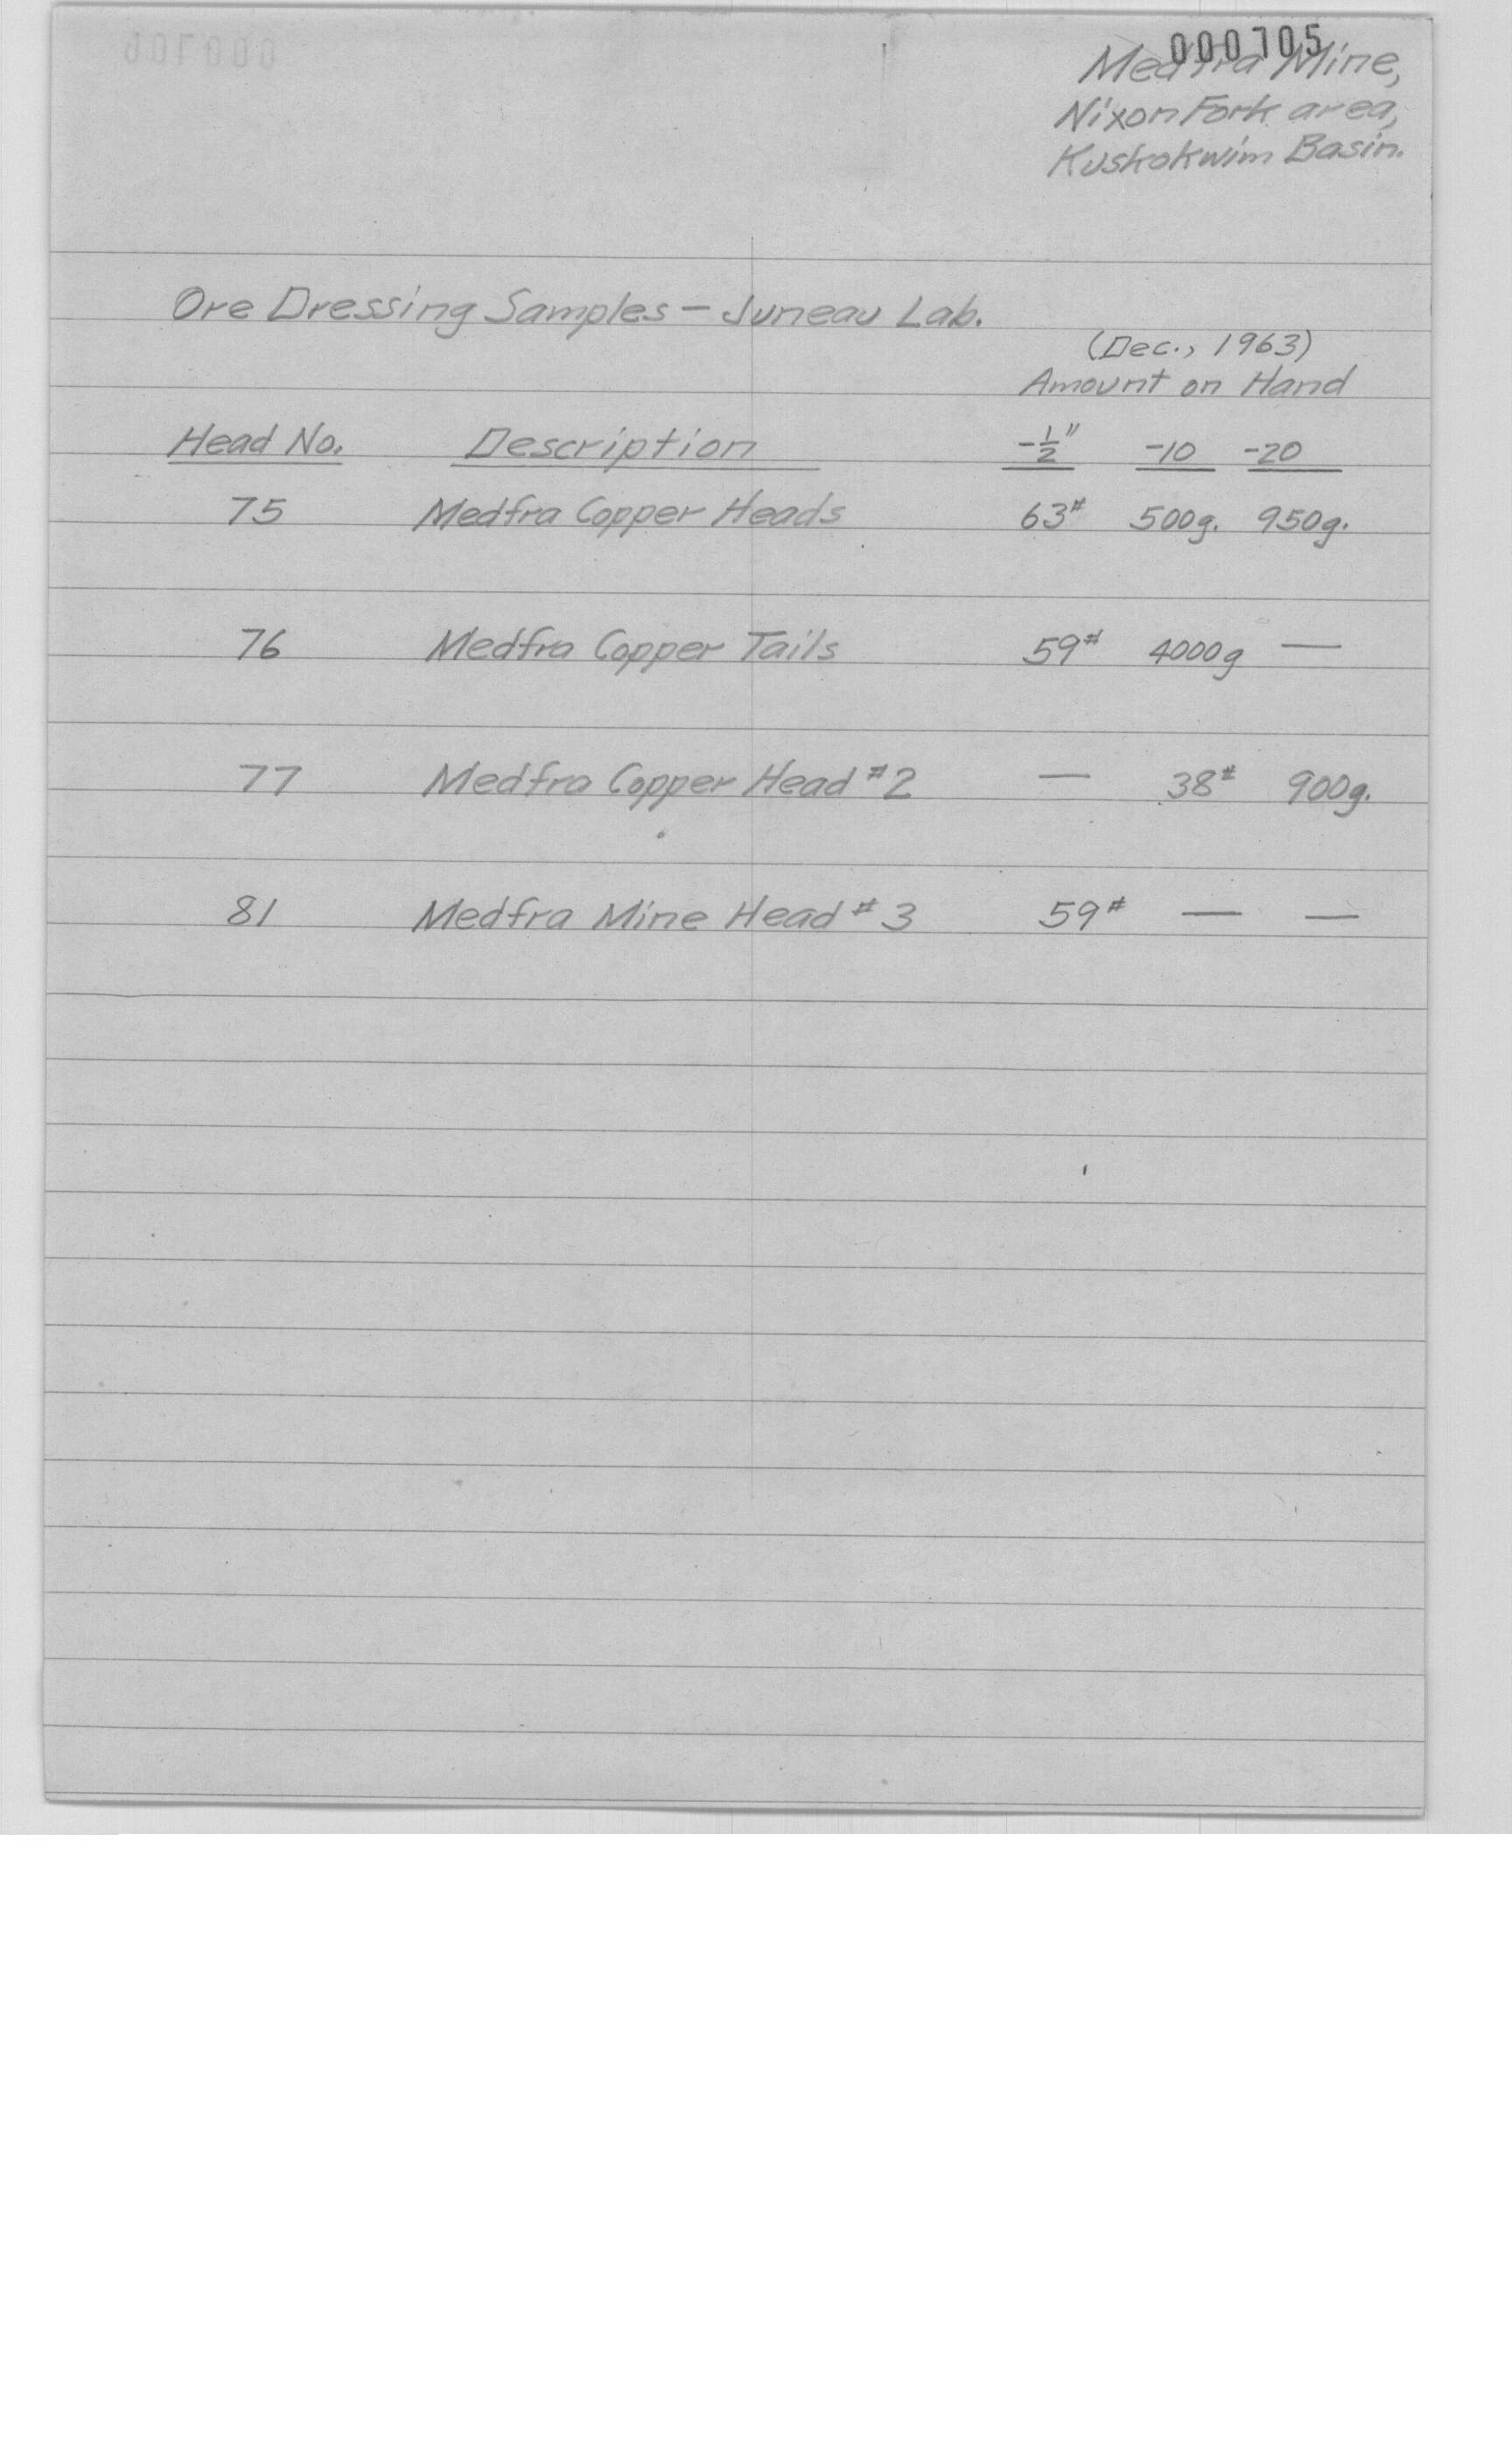 000705
Medfra Mine,
Nixon Fork area,
Kuskokwim Basin.
Ore Dressing Samples – Juneau Lab.
(Dec., 1963)
Amount on Hand
Head No. Description -½" -10 -20
75 Medfra Copper Heads 63# 500g. 950g.
76 Medfra Copper Tails 59# 4000g —
77 Medfra Copper Head #2 — 38# 900g.
81 Medfra Mine Head #3 59# — —